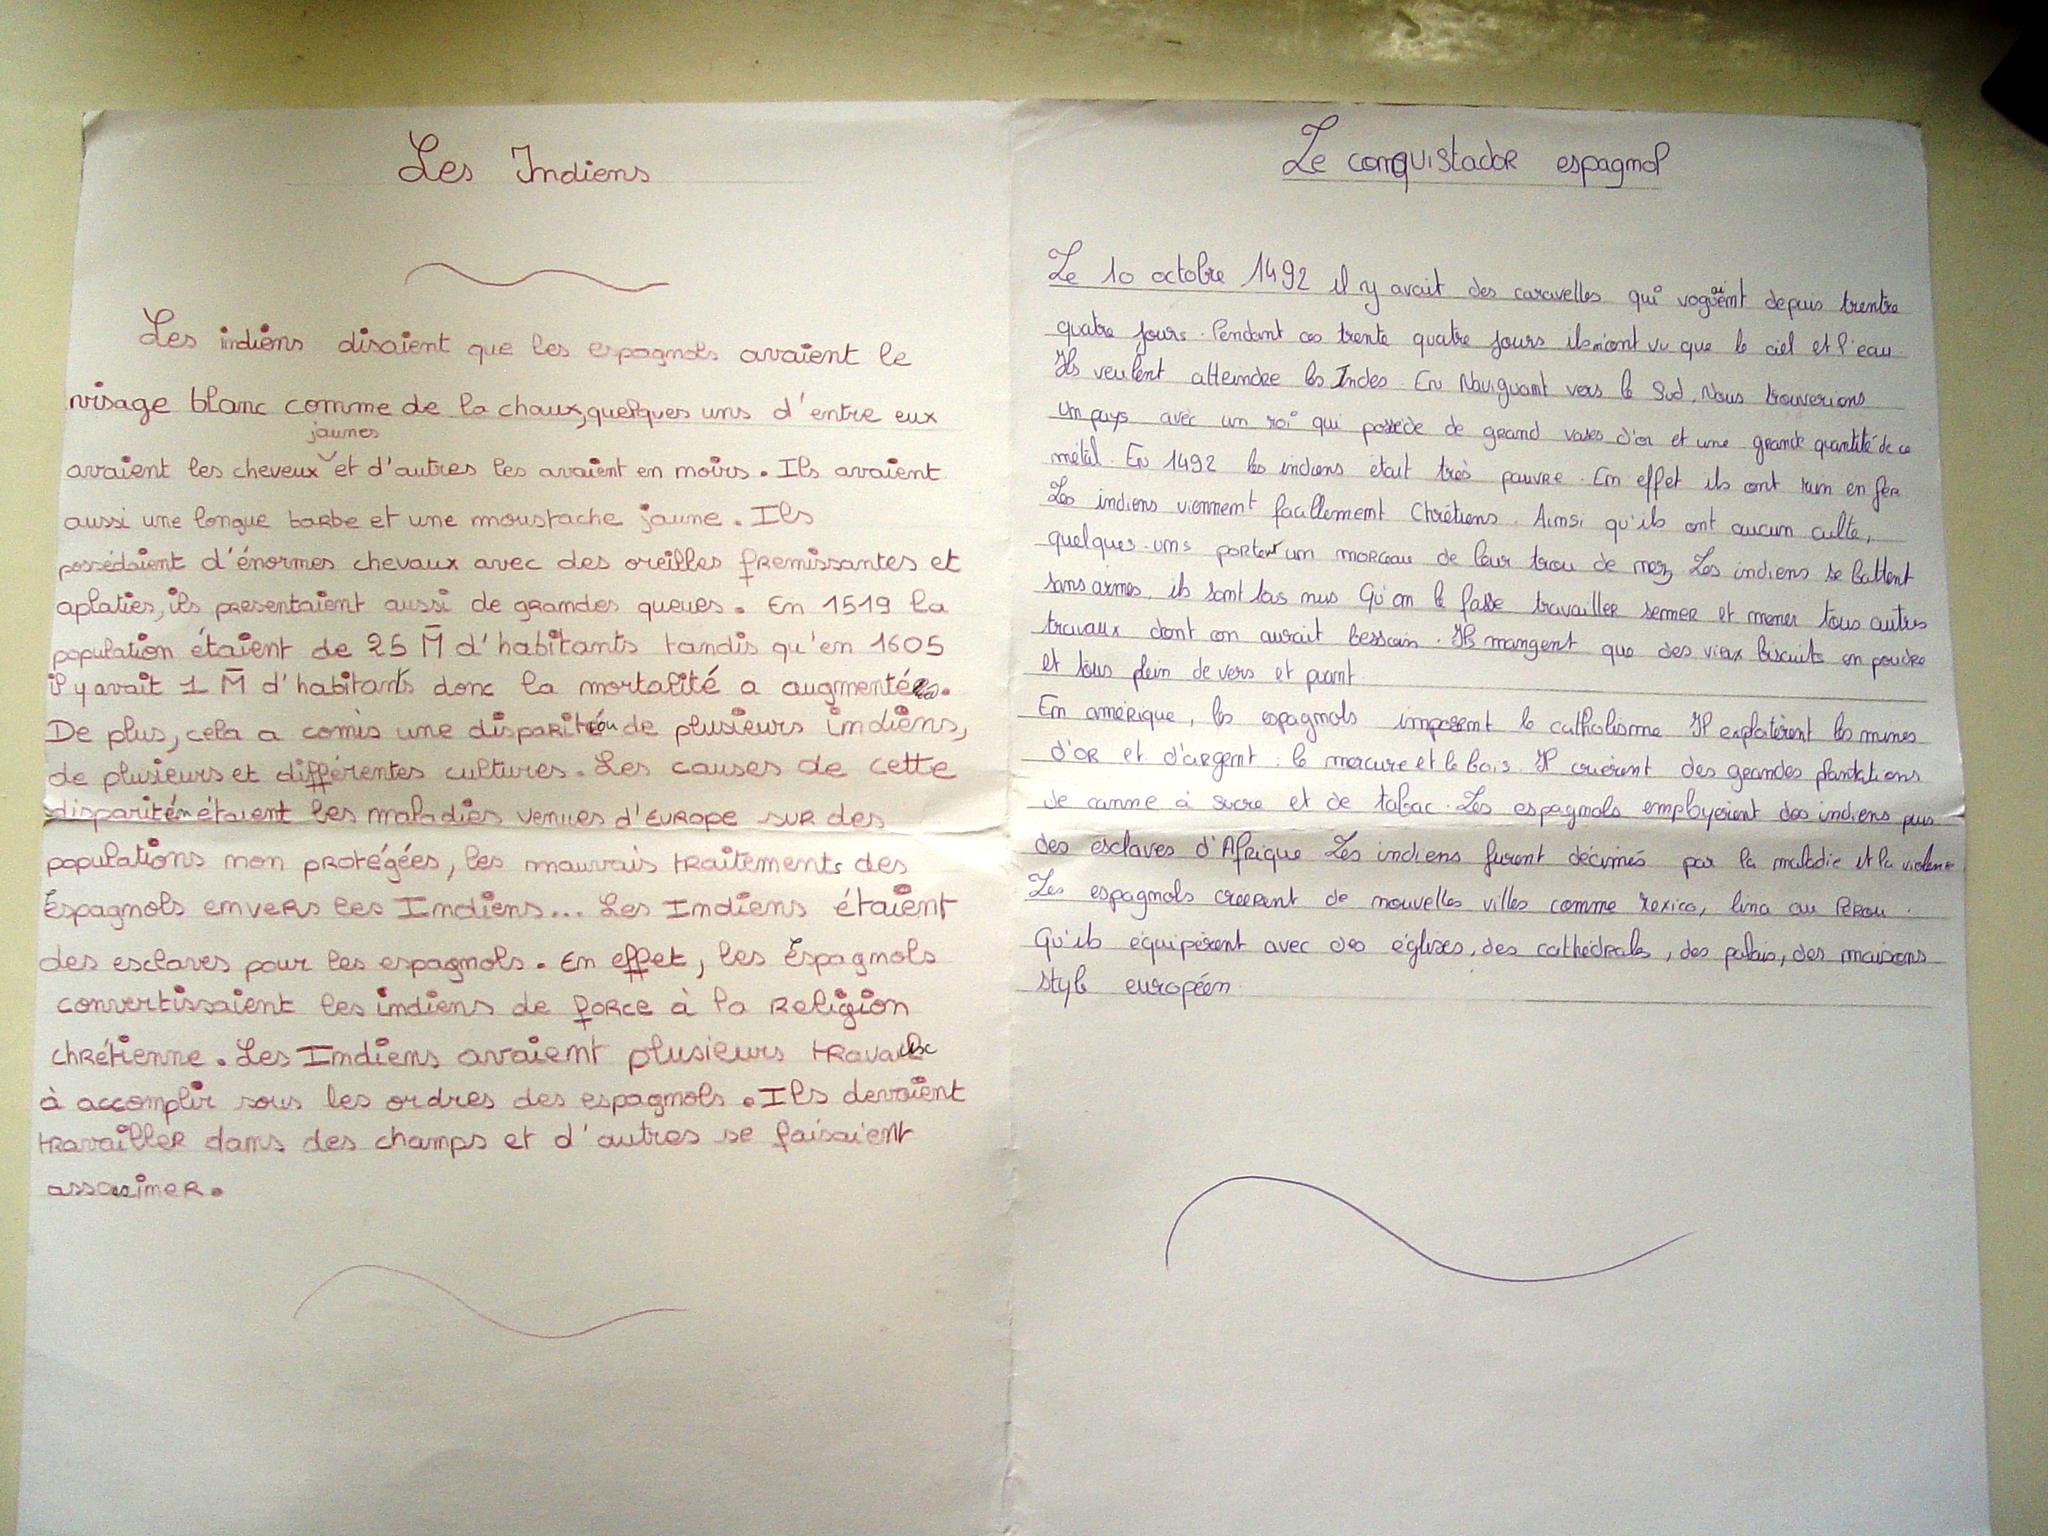 Les Indiens
Les indiens disaient que les espagnols avaient le
visage blanc comme de la chaux, quelques uns d'entre eux
jaunes
avaient les cheveux et d'autres les avaient en noirs. Ils avaient
aussi une longue barbe et une moustache jaune. Ils
possédaient d'énormes chevaux avec des oreilles fremissantes et
aplaties, ils presentaient aussi de grandes queues. En 1519 la
population étaient de 25 M d'habitants tandis qu'en 1605
il y avait 1 M d'habitants donc la mortalité a augmenté.
De plus, cela a comis une disparition de plusieurs indiens,
de plusieurs et différentes cultures. Les causes de cette
étaient les maladies venues d'Europe sur des
populations non protégées, les mauvais traitements des
Espagnols envers les Indiens... Les Indiens étaient
des esclaves pour les espagnols. En effet, les Espagnols
convertissaient les indiens de force à la religion
chrétienne. Les Indiens avaient plusieurs travaux
à accomplir sous les ordres des espagnols. Ils devaient
travailler dans des champs et d'autres se faisaient
assassiner.
Le conquistador espagnol
Le 10 octobre 1492 il y avait des caravelles qui voguaient depuis trentre
quatre jours. Pendant ces trente quatre jours ils n'ont vu que le ciel et l'eau.
Ils veulent atteindre les Indes. En Naviguant vers le Sud, Nous trouverions
un pays avec un roi qui possède de grand vases d'or et une grande quantité de ce
métal. En 1492 les indiens était très pauvre. En effet ils ont en fer
Les indiens viennent facillement Chrétiens. Ainsi qu'ils ont aucun culte,
quelques-uns portent un morceau de leur trou de nez Les indiens se battent
sans armes, ils sont nus Qu'on le fasse travailler semer et mener tous autres
travaux dont on aurait bessoin. Ils mangent que des vieux biscuits en poudre
et tous plein de vers et puant.
En amérique, les espagnols imposent le catholisme Il exploitèrent les mines
d'or et d'argent : le mercure et le bois. Il créèrent des grandes plantations
de canne à sucre et de tabac. Les espagnols employèrent des indiens puis
des esclaves d'Afrique Les indiens furent décimés par la maladie et la violence
Les espagnols creerent de nouvelles villes comme lima au Pérou.
Qu'ils équipèrent avec des églises, des cathédrales, des palais, des maisons
style européen.